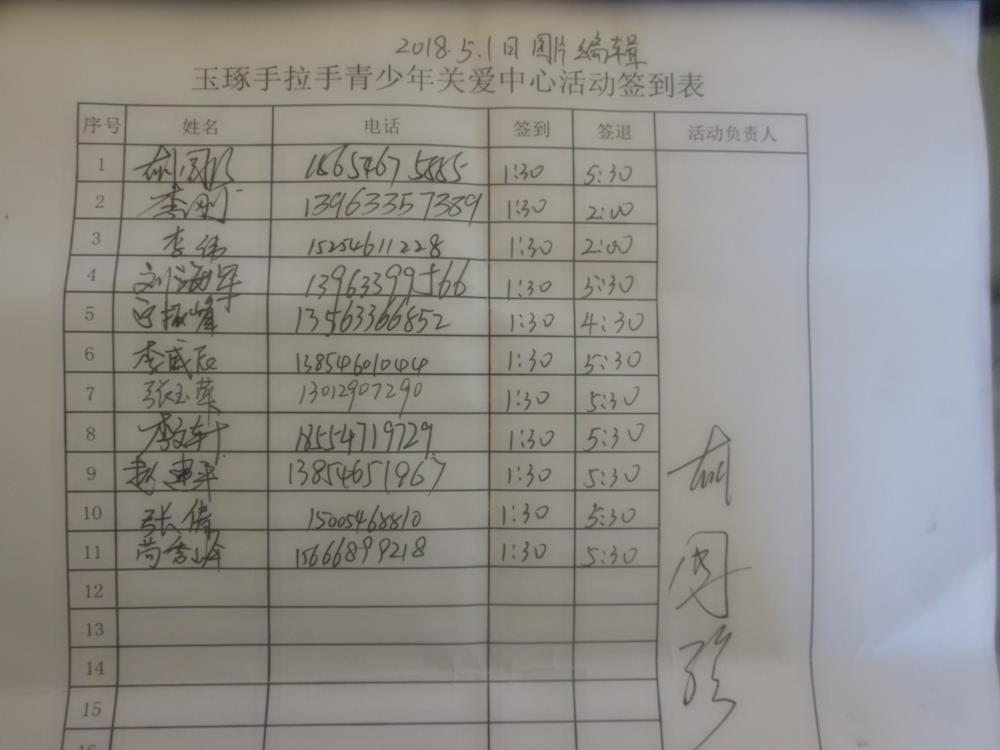 2018.5.1日 图片编辑
玉琢手拉手青少年关爱中心活动签到表
序号 姓名 电话 签到 签退 活动负责人
1 18654675885 1:30 5:30
2 李刚 13963357389 1:30 2:00
3 李伟 15254611228 1:30 2:00
4 刘海军 13963399566 1:30 5:30
5 13563366852 1:30 4:30
6 李威辰 13854601044 1:30 5:30
7 张玉萍 13012907290 1:30 5:30
8 18554719729 1:30 5:30
9 赵建平 13854651967 1:30 5:30
10 张倩 15005468810 1:30 5:30
11 尚秀峰 15666899218 1:30 5:30
12
13
14
15
16